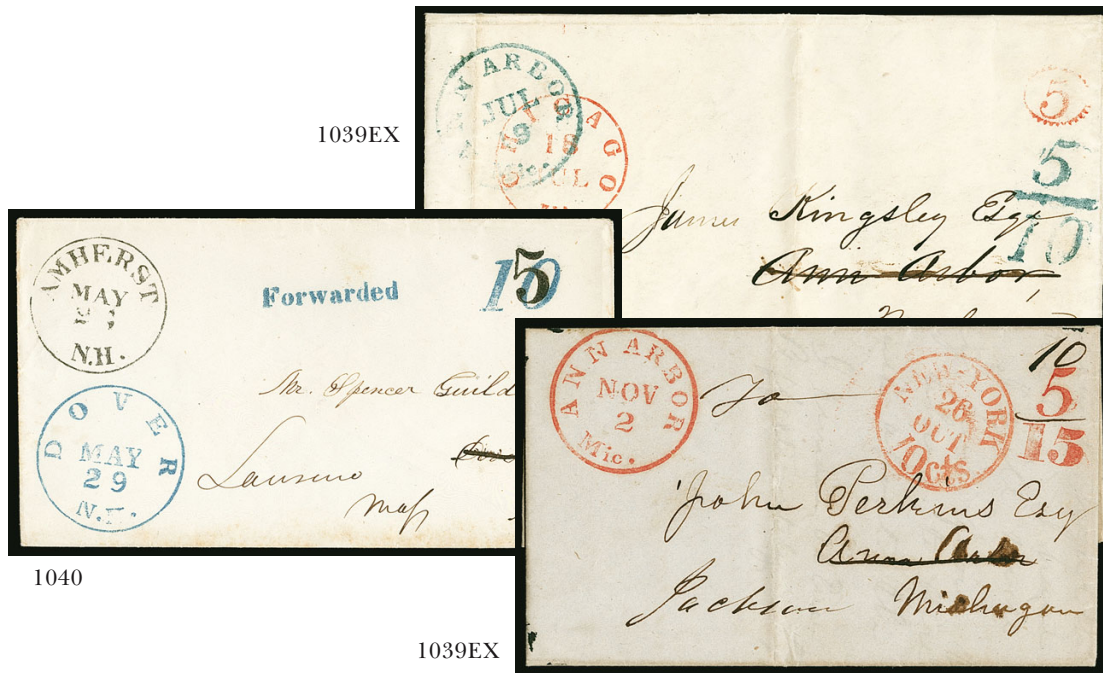 1039EX
ANN ARBOR
JUL
9
Mic.
CHICAGO
18
JUL
5
5
10
James Kingsley Esqr
Ann Arbor,
AMHERST
MAY
N.H.
Forwarded
10
5
DOVER
MAY
29
N.H.
Mr. Spencer Guild
Mass
1040
ANN ARBOR
NOV
2
Mic.
NEW-YORK
26
OCT
10cts
10
5
15
To
John Perkins Esq
Ann Arbor
Jackson Michigan
1039EX